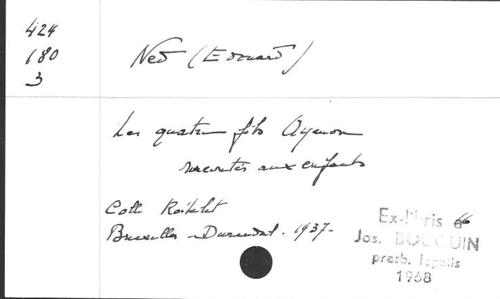 424
180
3
Ned (Edouard)
Les quatre fils Aymon
racontés aux enfants
Coll Roitelet
Bruxelles - Durendal. 1937-
Ex-libris
Jos. BOUQUIN
presb. legalis
1968